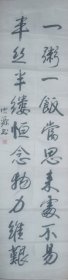 一粥一飯當思來處不易
半絲半縷恒念物力維艱